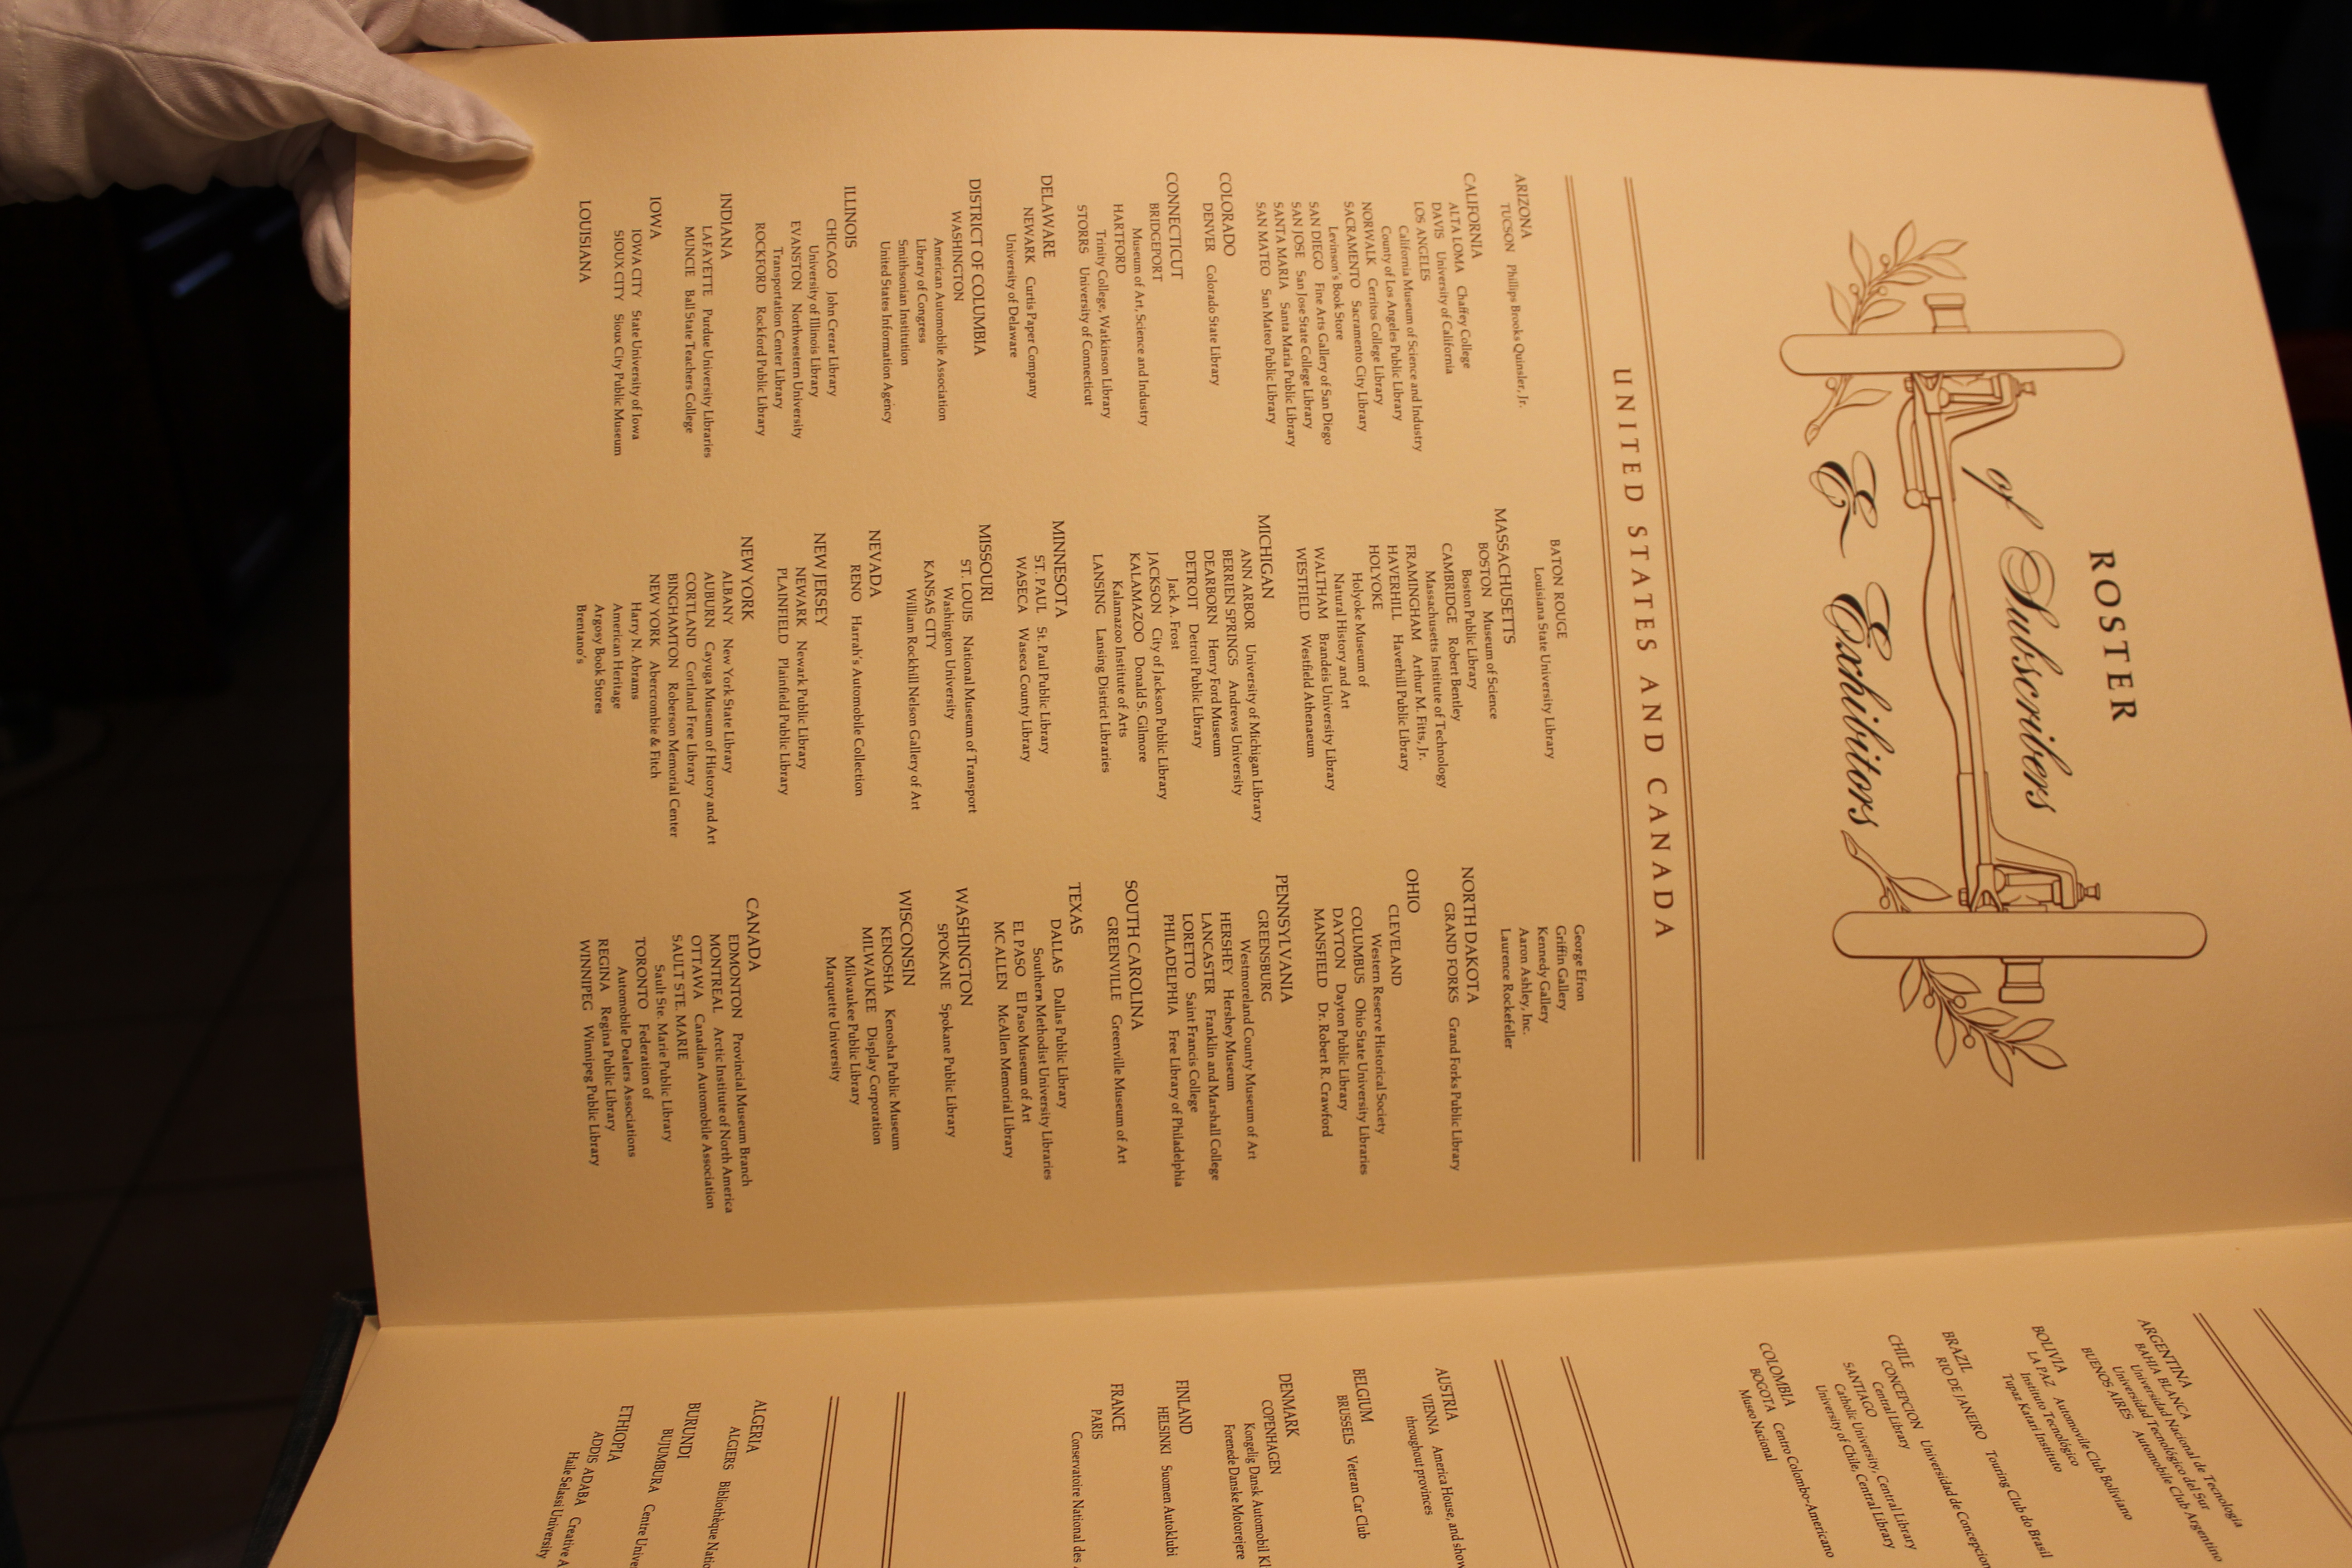 ROSTER
of Subscribers
& Exhibitors
UNITED STATES AND CANADA
ARIZONA
TUCSON Phillips Brooks Quinsler, Jr.
CALIFORNIA
ALTA LOMA Chaffey College
DAVIS University of California
LOS ANGELES
California Museum of Science and Industry
County of Los Angeles Public Library
NORWALK Cerritos College Library
SACRAMENTO Sacramento City Library
Levinson's Book Store
SAN DIEGO Fine Arts Gallery of San Diego
SAN JOSE San Jose State College Library
SANTA MARIA Santa Maria Public Library
SAN MATEO San Mateo Public Library
COLORADO
DENVER Colorado State Library
CONNECTICUT
BRIDGEPORT
Museum of Art, Science and Industry
HARTFORD
Trinity College, Watkinson Library
STORRS University of Connecticut
DELAWARE
NEWARK Curtis Paper Company
University of Delaware
DISTRICT OF COLUMBIA
WASHINGTON
American Automobile Association
Library of Congress
Smithsonian Institution
United States Information Agency
ILLINOIS
CHICAGO John Crerar Library
University of Illinois Library
EVANSTON Northwestern University
Transportation Center Library
ROCKFORD Rockford Public Library
INDIANA
LAFAYETTE Purdue University Libraries
MUNCIE Ball State Teachers College
IOWA
IOWA CITY State University of Iowa
SIOUX CITY Sioux City Public Museum
LOUISIANA
BATON ROUGE
Louisiana State University Library
MASSACHUSETTS
BOSTON Museum of Science
Boston Public Library
CAMBRIDGE Robert Bentley
Massachusetts Institute of Technology
FRAMINGHAM Arthur M. Fitts, Jr.
HAVERHILL Haverhill Public Library
HOLYOKE
Holyoke Museum of
Natural History and Art
WALTHAM Brandeis University Library
WESTFIELD Westfield Athenaeum
MICHIGAN
ANN ARBOR University of Michigan Library
BERRIEN SPRINGS Andrews University
DEARBORN Henry Ford Museum
DETROIT Detroit Public Library
Jack A. Frost
JACKSON City of Jackson Public Library
KALAMAZOO Donald S. Gilmore
Kalamazoo Institute of Arts
LANSING Lansing District Libraries
MINNESOTA
ST. PAUL St. Paul Public Library
WASECA Waseca County Library
MISSOURI
ST. LOUIS National Museum of Transport
Washington University
KANSAS CITY
William Rockhill Nelson Gallery of Art
NEVADA
RENO Harrah's Automobile Collection
NEW JERSEY
NEWARK Newark Public Library
PLAINFIELD Plainfield Public Library
NEW YORK
ALBANY New York State Library
AUBURN Cayuga Museum of History and Art
CORTLAND Cortland Free Library
BINGHAMTON Roberson Memorial Center
NEW YORK Abercrombie & Fitch
Harry N. Abrams
American Heritage
Argosy Book Stores
Brentano's
George Efron
Griffin Gallery
Kennedy Gallery
Aaron Ashley, Inc.
Laurence Rockefeller
NORTH DAKOTA
GRAND FORKS Grand Forks Public Library
OHIO
CLEVELAND
Western Reserve Historical Society
COLUMBUS Ohio State University Libraries
DAYTON Dayton Public Library
MANSFIELD Dr. Robert R. Crawford
PENNSYLVANIA
GREENSBURG
Westmoreland County Museum of Art
HERSHEY Hershey Museum
LANCASTER Franklin and Marshall College
LORETTO Saint Francis College
PHILADELPHIA Free Library of Philadelphia
SOUTH CAROLINA
GREENVILLE Greenville Museum of Art
TEXAS
DALLAS Dallas Public Library
Southern Methodist University Libraries
EL PASO El Paso Museum of Art
MC ALLEN McAllen Memorial Library
WASHINGTON
SPOKANE Spokane Public Library
WISCONSIN
KENOSHA Kenosha Public Museum
MILWAUKEE Display Corporation
Milwaukee Public Library
Marquette University
CANADA
EDMONTON Provincial Museum Branch
MONTREAL Arctic Institute of North America
OTTAWA Canadian Automobile Association
SAULT STE. MARIE
Sault Ste. Marie Public Library
TORONTO Federation of
Automobile Dealers Associations
REGINA Regina Public Library
WINNIPEG Winnipeg Public Library
ARGENTINA
BAHIA BLANCA
Universidad Nacional de Tecnologia
Universidad Tecnológico del Sur
BUENOS AIRES Automobile Club Argentino
BOLIVIA
LA PAZ Automovile Club Boliviano
Instituto Tecnológico
Tupaz Katari Instituto
BRAZIL
RIO DE JANEIRO Touring Club do Brasil
CHILE
CONCEPCION Universidad de Concepcion
Central Library
SANTIAGO
Catholic University, Central Library
University of Chile, Central Library
COLOMBIA
BOGOTA Centro Colombo-Americano
Museo Nacional
AUSTRIA
VIENNA America House, and show
throughout provinces
BELGIUM
BRUSSELS Veteran Car Club
DENMARK
COPENHAGEN
Kongelig Dansk Automobil Kl
Forenede Danske Motorejere
FINLAND
HELSINKI Suomen Autoklubi
FRANCE
PARIS
Conservatoire National des
ALGERIA
ALGIERS Bibliothèque Natio
BURUNDI
BUJUMBURA Centre Unive
ETHIOPIA
ADDIS ADABA Creative A
Haile Selassi University